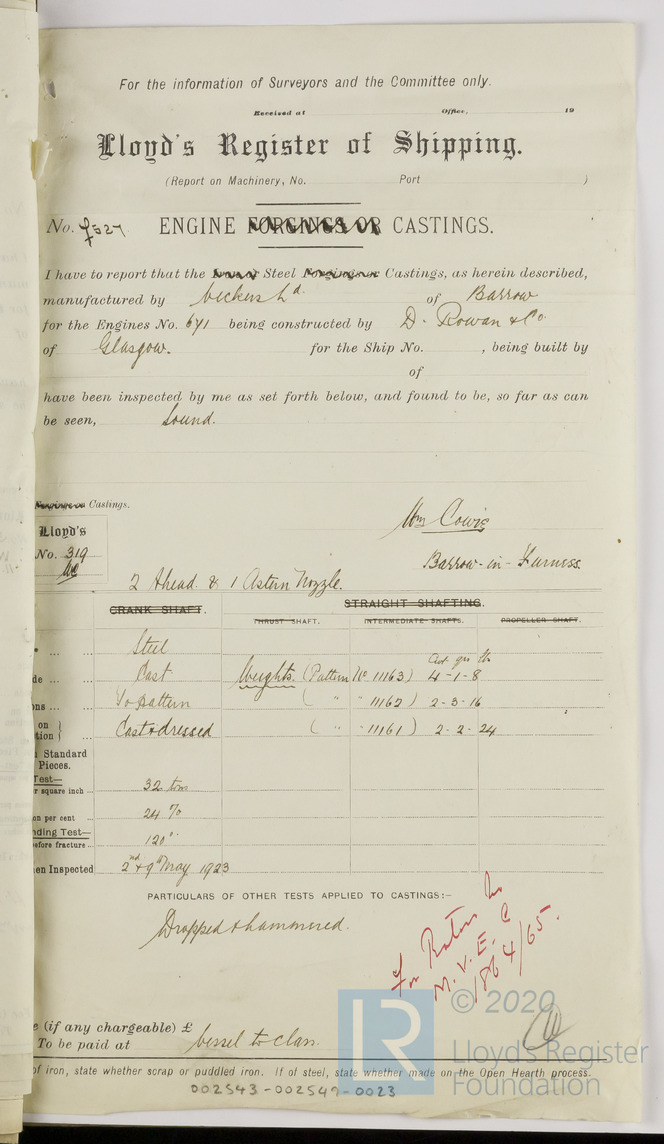 For the information of Surveyors and the Committee only.
Received at Office, 19
Lloyd's Register of Shipping.
(Report on Machinery, No. Port )
No. f527. ENGINE FORGINGS OR CASTINGS.
I have to report that the Steel Forgings or Castings, as herein described,
manufactured by Vickers Ld. of Barrow
for the Engines No. 671 being constructed by D. Rowan & Co
of Glasgow. for the Ship No. , being built by
of
have been inspected by me as set forth below, and found to be, so far as can
be seen, Sound.
Forgings or Castings.
Lloyd's
No. 319
WC
Wm Cowie
Barrow-in-Furness.
2 Ahead & 1 Astern Nozzle.
CRANK SHAFT. STRAIGHT SHAFTING.
THRUST SHAFT. INTERMEDIATE SHAFTS. PROPELLER SHAFT.
Steel
Cwt qrs lb
de ... Cast Weights. (Pattern No 11163) 4-1-8
ons ... To Pattern ( " " 11162) 2-3-16
on } ... Cast & dressed ( " " 11161) 2-2-24
tion } ...
Standard
Pieces.
Test—
r square inch ... 32 tons
on per cent ... 24 %
nding Test—
before fracture ... 120°
en Inspected 2nd & 9th May 1923
PARTICULARS OF OTHER TESTS APPLIED TO CASTINGS:—
Dropped & hammered.
For Rotors No
M. V. E. C
1864/65.
e (if any chargeable) £
To be paid at Vessel to class.
of iron, state whether scrap or puddled iron. If of steel, state whether made on the Open Hearth process.
002543-002547-0023
© 2020
LR
Lloyd's Register
Foundation